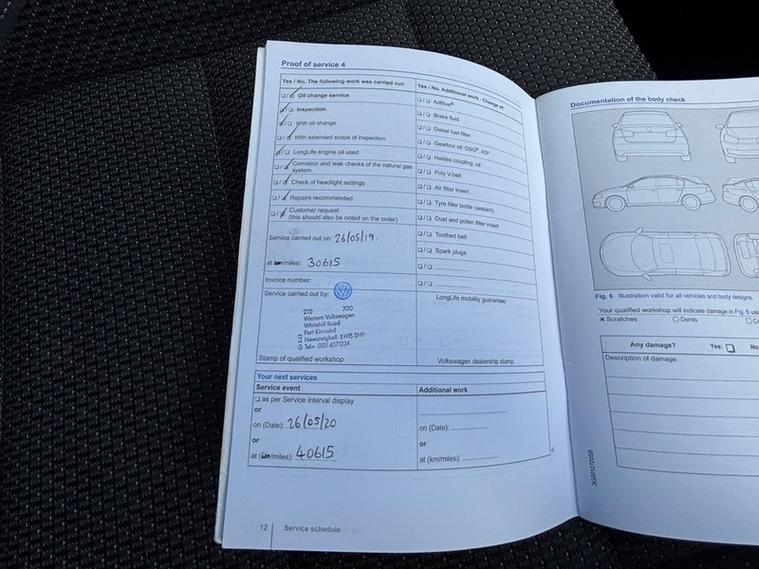 Proof of service 4
Yes / No. The following work was carried out:
Oil change service
Inspection
With oil change
With extended scope of inspection
LongLife engine oil used
Corrosion and leak checks of the natural gas
system
Check of headlight settings
Repairs recommended
Customer request
(this should also be noted on the order)
Service carried out on: 26/05/19.
at km/miles: 30615
Invoice number:
Service carried out by:
210 700
Western Volkswagen
Whitehill Road
Fort Kinnaird
Newcraighall EH15 3HR
Tele: 0131 6571234
Stamp of qualified workshop
Yes / No. Additional work - Change of:
AdBlue®
Brake fluid
Diesel fuel filter
Gearbox oil: DSG®, ATF
Haldex coupling: oil
Poly V-belt
Air filter insert
Tyre filler bottle (sealant)
Dust and pollen filter insert
Toothed belt
Spark plugs
LongLife mobility guarantee:
Volkswagen dealership stamp
Your next services
Service event
as per Service interval display
or
on (Date): 26/05/20
or
at (km/miles): 40615
Additional work
on (Date):
or
at (km/miles):
12 Service schedule
Documentation of the body check
Fig. 6 Illustration valid for all vehicles and body designs.
Your qualified workshop will indicate damage in Fig. 6
× Scratches Dents
Any damage? Yes:
Description of damage:
3G0012720SB